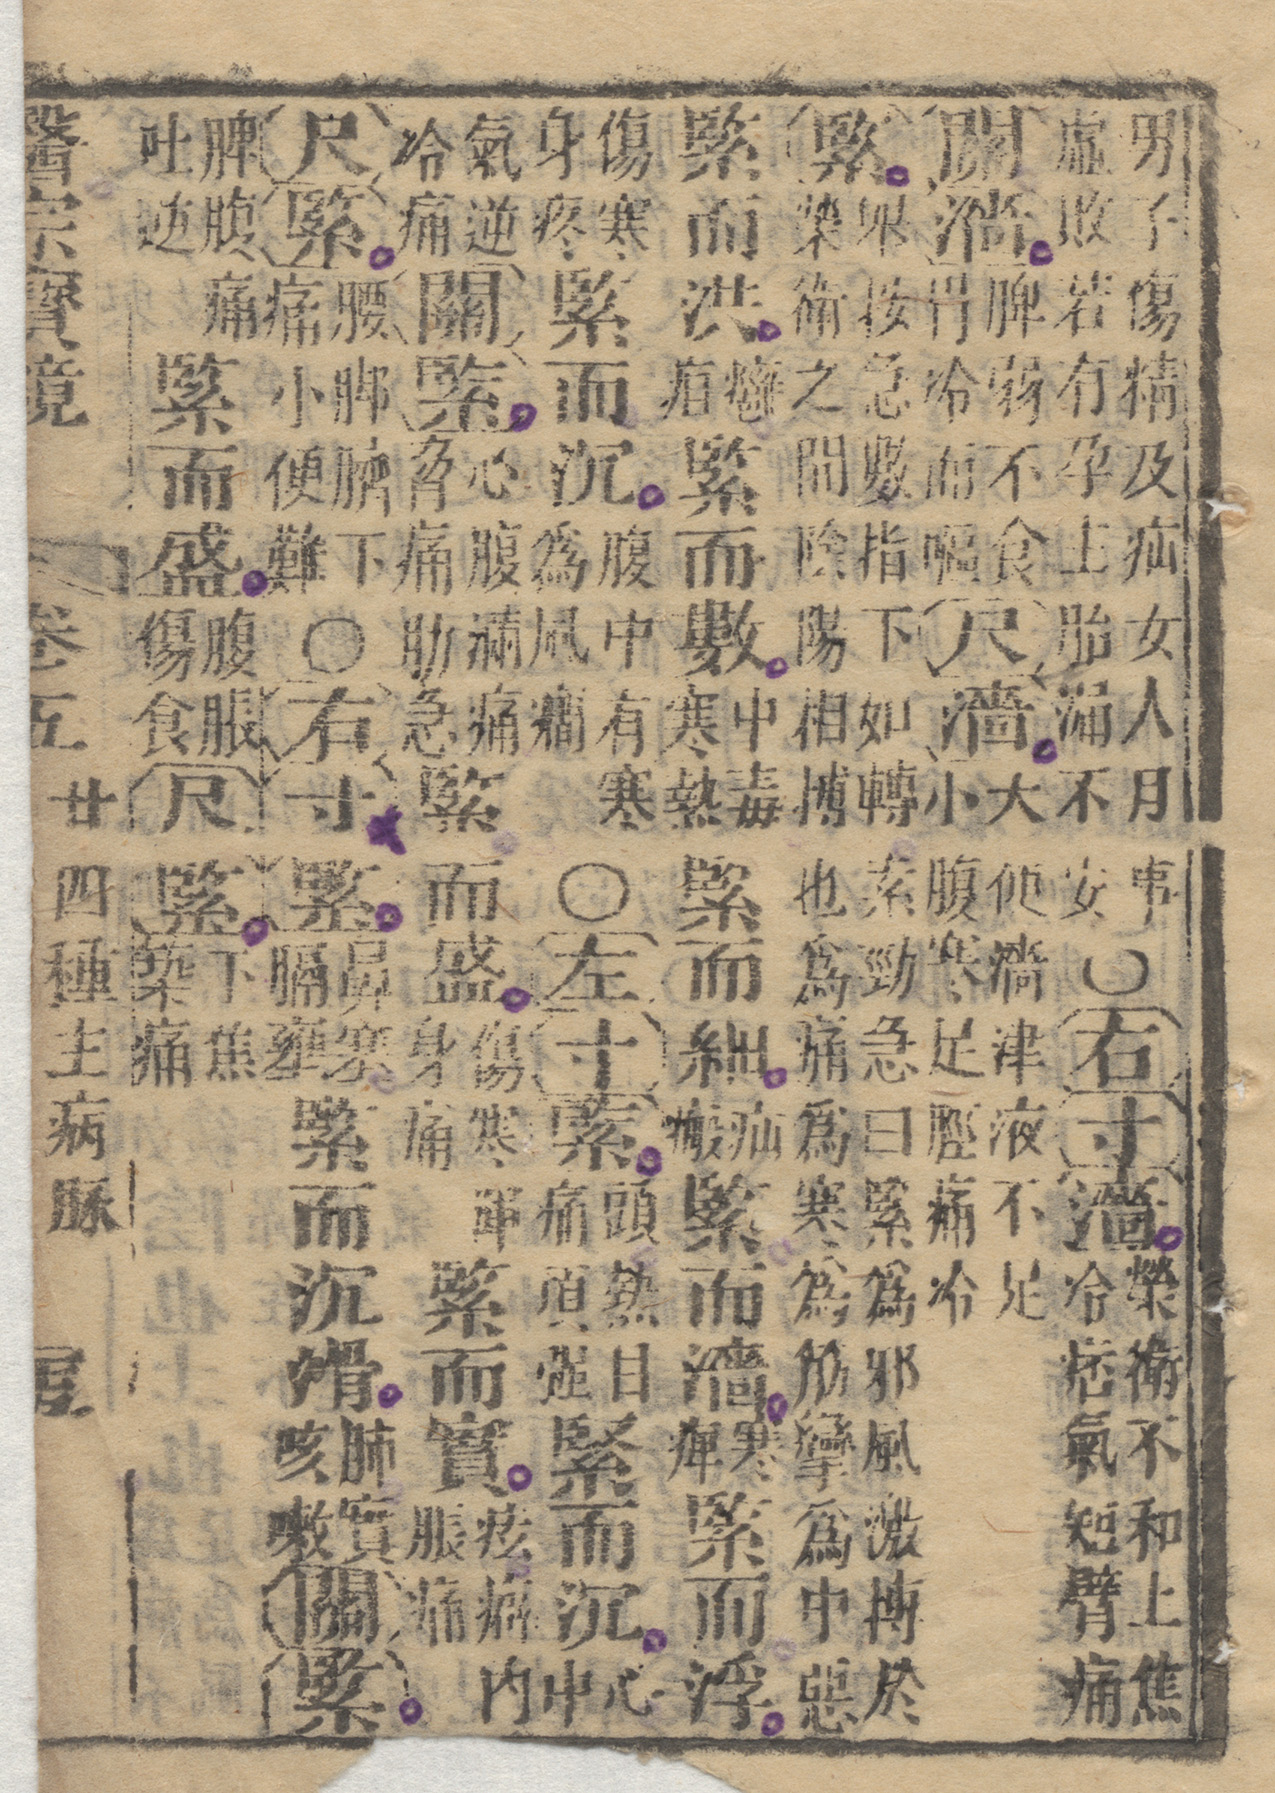 男子傷精及疝女人月事虛敗若有孕主胎漏不安○右寸濇榮衛不和上焦冷痞氣短臂痛
關濇脾弱不食胃冷而嘔尺濇大便濇津液不足小腹寒足脛痛冷
緊舉按急數指下如轉索勁急曰緊為邪風激搏於榮衛之間陰陽相搏也為痛為寒為筋攣為中惡
緊而洪癰疽緊而數中毒寒熱緊而細疝瘕緊而濇寒痺緊而浮
傷寒身疼緊而沉腹中有寒為風癇○左寸緊頭熱目痛項強緊而沉心中
氣逆冷痛關緊心腹滿痛脅痛肋急緊而盛傷寒渾身痛緊而實痃癖內脹痛
尺緊腰脚臍下痛小便難○右寸緊鼻塞膈壅緊而沉滑肺實咳嗽關緊
脾腹痛吐逆緊而盛腹脹傷食尺緊下焦築痛
醫宗寶鏡 卷五 廿四種主病脉